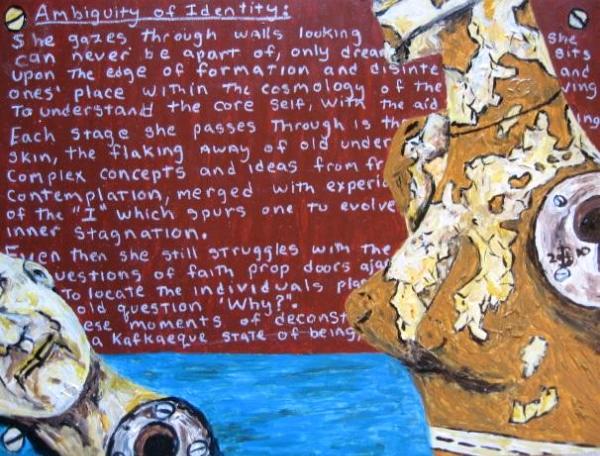 Ambiguity of Identity:
She gazes through walls looking She
can never be apart of, only drea sits
upon the edge of formation and disinte and
ones' place within the cosmology of the ving
To understand the core self, with the aid
Each stage she passes through is th
skin, the flaking away of old under
complex concepts and ideas from fr
contemplation, merged with experi
of the "I" which spurs one to evolve
inner stagnation.
Even then she still struggles with the
questions of faith prop doors aja
To locate the individuals pla
old question "Why?".
ese moments of deconst
a Kafkaeque state of being,